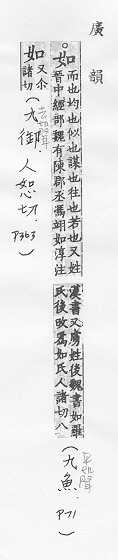 廣韻
如
而也均也似也謀也往也若也又姓
晉中經部魏有陳郡丞馮翊如淳注
漢書又虜姓後魏書如羅
氏後改爲如氏人諸切八
(九魚. P71)
平聲
如
又尒
諸切
(九御. 人恕切. P363)
去聲